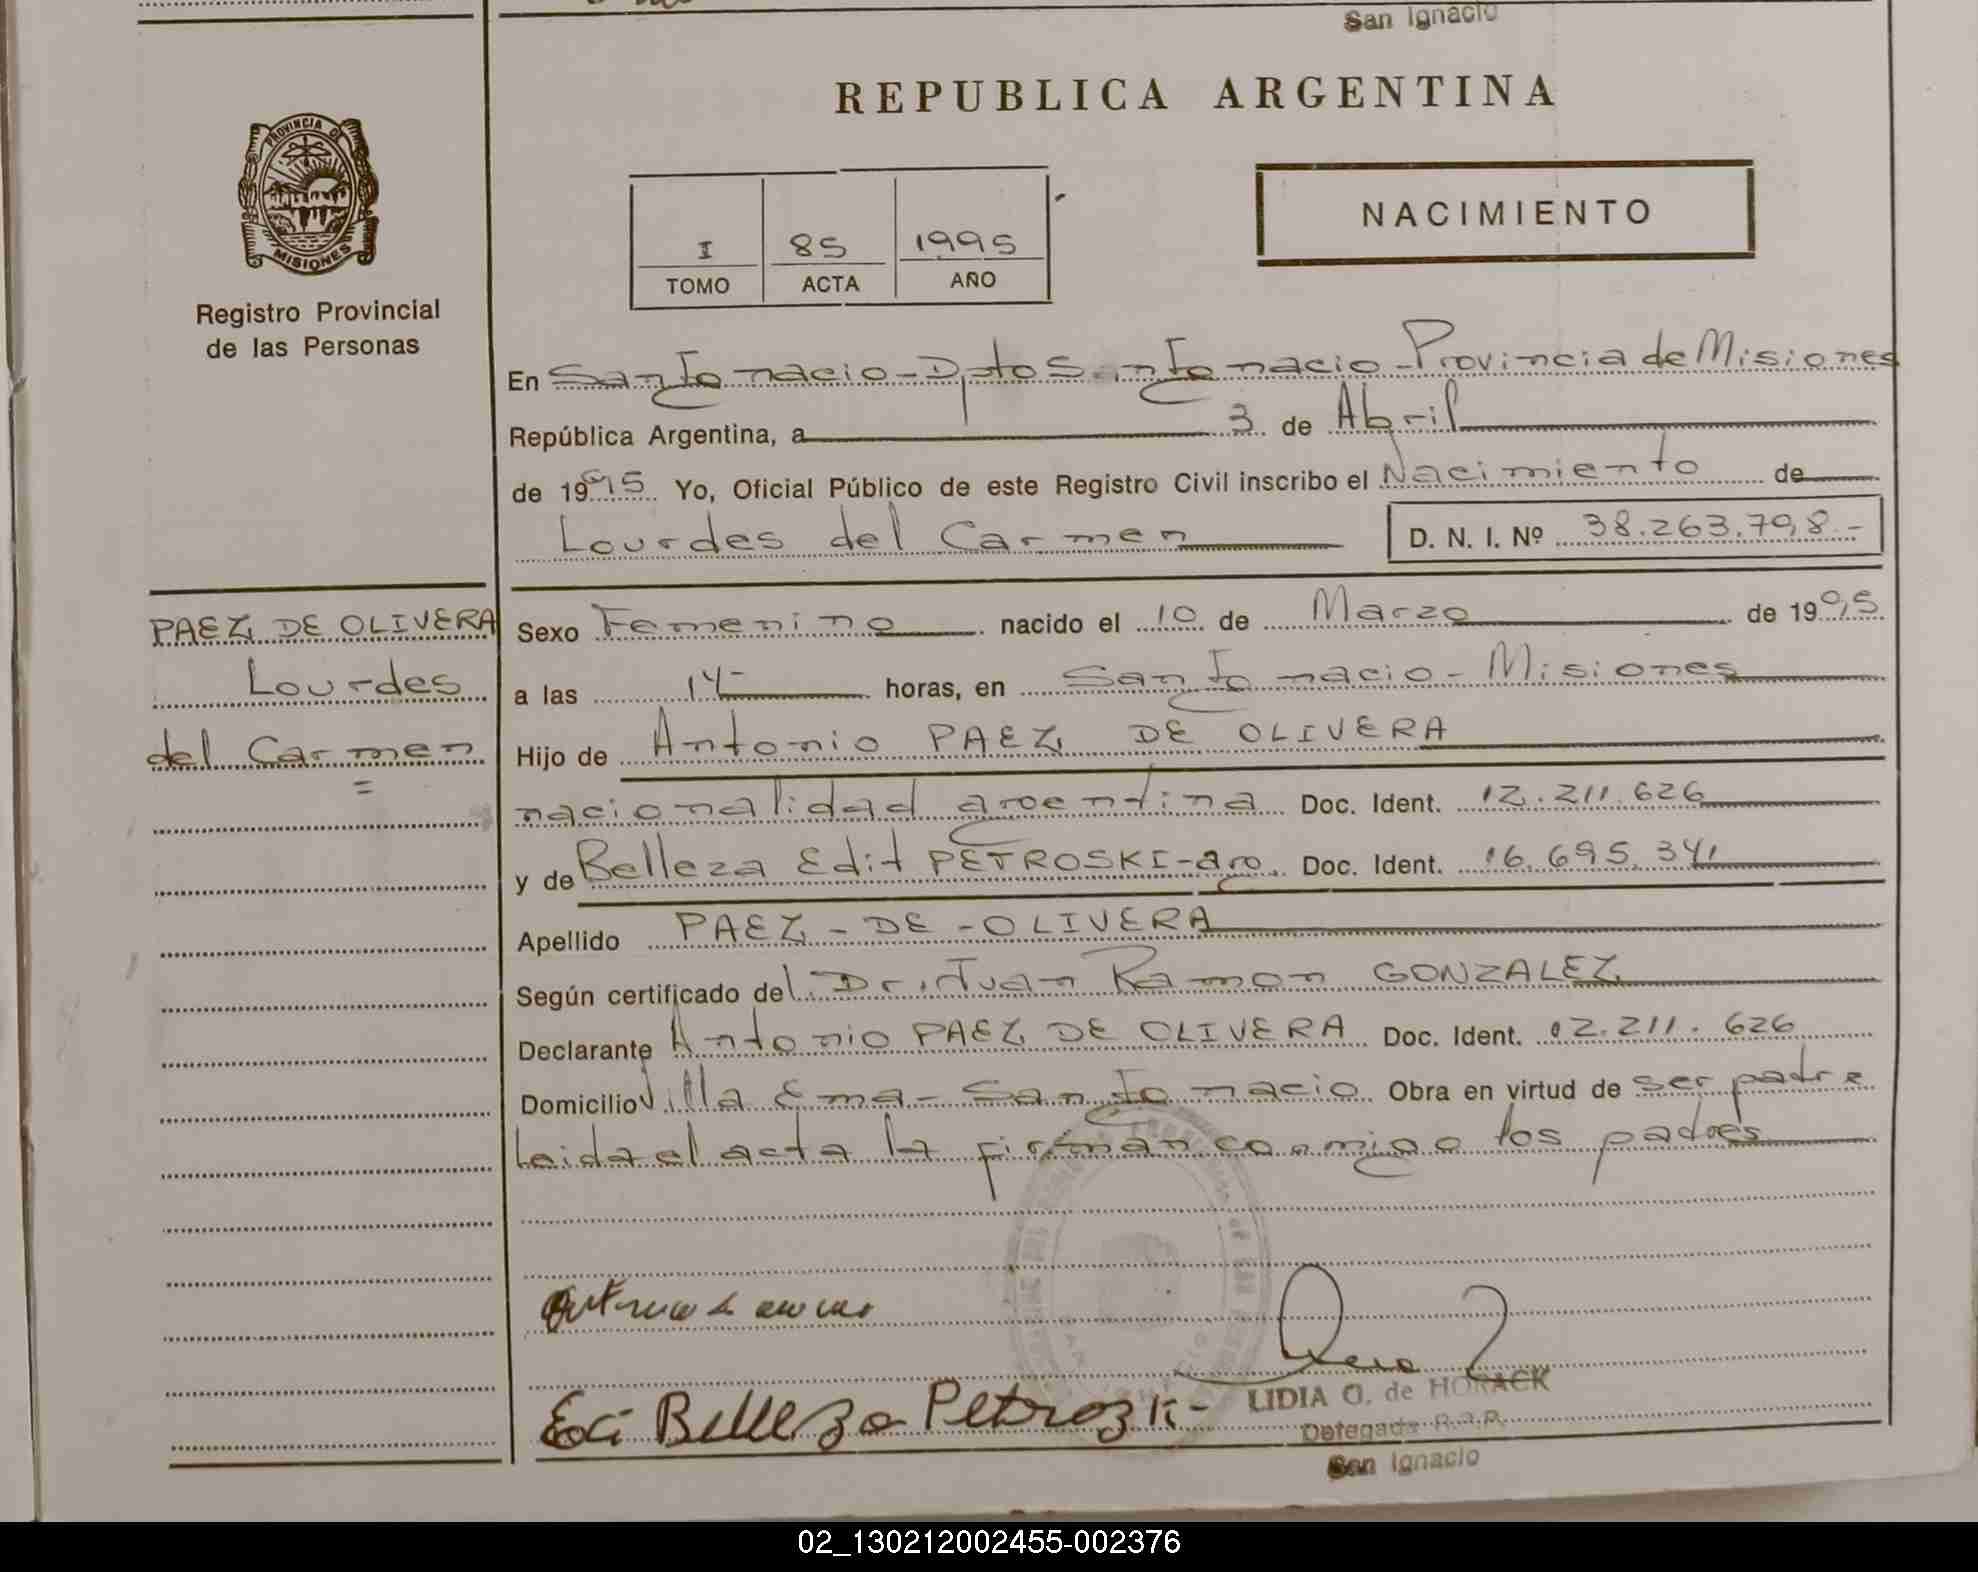 San Ignacio
REPUBLICA ARGENTINA
PROVINCIA DE
MISIONES
Registro Provincial
de las Personas
I 85 1995
TOMO ACTA AÑO
NACIMIENTO
En San Ignacio - Dpto San Ignacio - Provincia de Misiones
República Argentina, a 3 de Abril
de 1995 Yo, Oficial Público de este Registro Civil inscribo el Nacimiento de
Lourdes del Carmen D. N. I. Nº 38.263.798.-
PAEZ DE OLIVERA
Lourdes
del Carmen
=
Sexo Femenino nacido el 10 de Marzo de 1995
a las 14- horas, en San Ignacio - Misiones
Hijo de Antonio PAEZ DE OLIVERA
nacionalidad argentina Doc. Ident. 12.211.626
y de Belleza Edit PETROSKI - arg. Doc. Ident. 16.695.341
Apellido PAEZ - DE - OLIVERA
Según certificado del Dr. Juan Ramon GONZALEZ
Declarante Antonio PAEZ DE OLIVERA Doc. Ident. 12.211.626
Domicilio Villa Ema - San Ignacio Obra en virtud de ser padre
Leida el acta la firman conmigo los padres
Belleza Petrozki -
LIDIA O. de HORACK
Delegada R.P.P.
San Ignacio
02_130212002455-002376